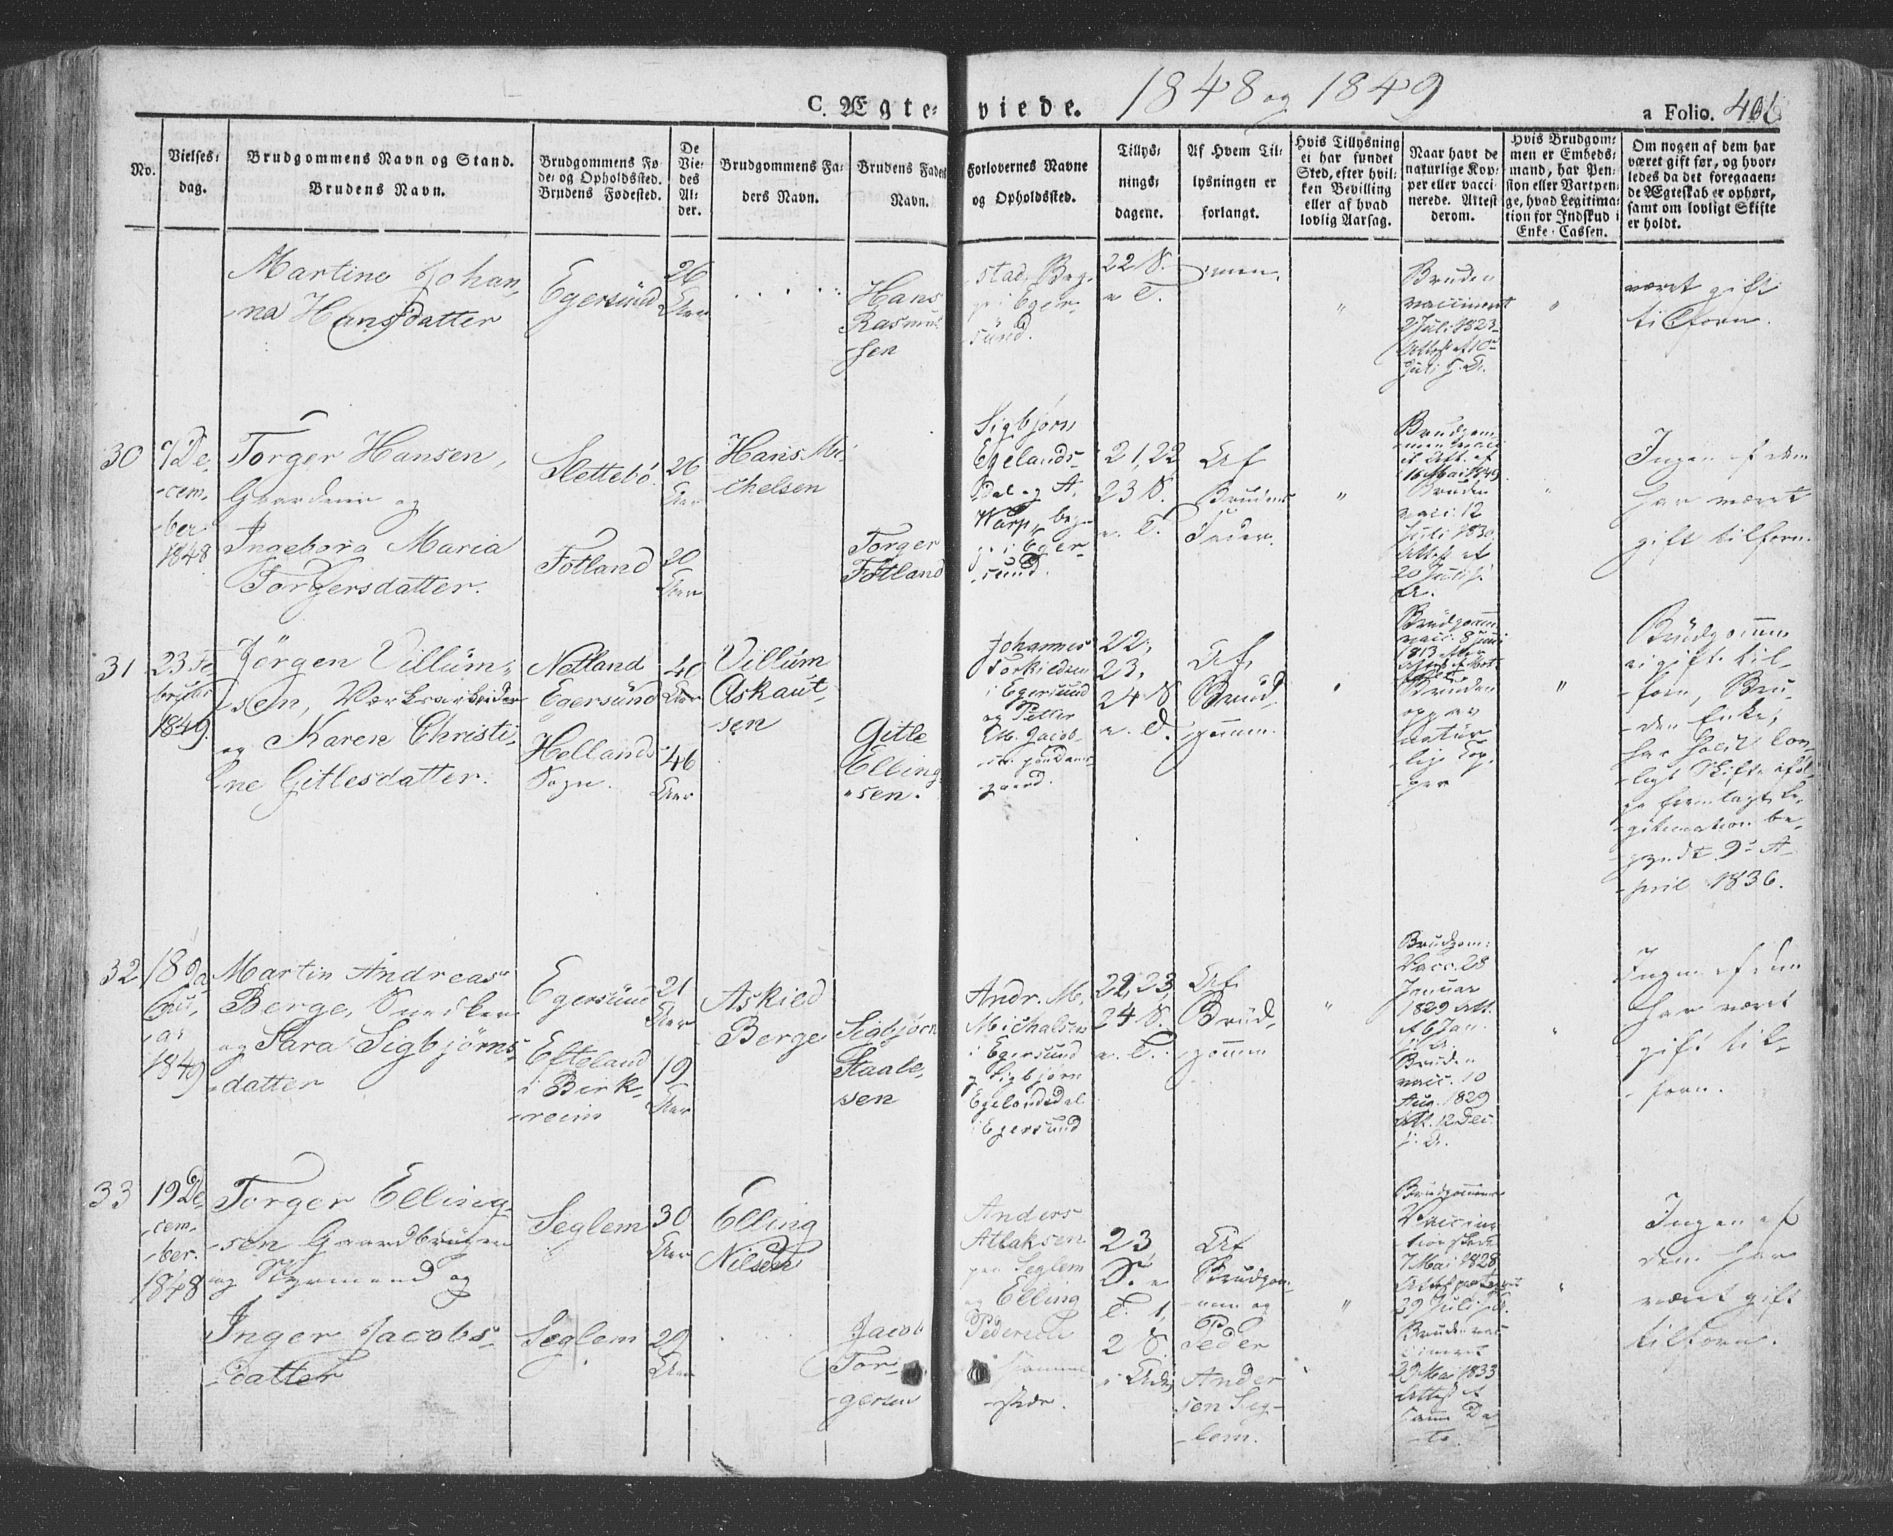 C. Ægte-
viede. 1848 og 1849
a Folio. 406
No.
Vielses-
dag.
Brudgommens Navn og Stand.
Brudens Navn.
Brudgommens Fø-
de- og Opholdssted.
Brudens Fødested.
De
Vie-
des
Al-
der.
Brudgommens Fa-
ders Navn.
Brudens Faders
Navn.
Forlovernes Navne
og Opholdssted.
Tillys-
nings-
dagene.
Af Hvem Til-
lysningen er
forlangt.
Hvis Tillysning
ei har fundet
Sted, efter hvil-
ken Bevilling
eller af hvad
lovlig Aarsag.
Naar havt de
naturlige Kop-
per eller vacci-
nerede. Attest
derom.
Hvis Brudgom-
men er Embeds-
mand, har Pen-
sion eller Vartpen-
ge, hvad Legitima-
tion for Indskud i
Enke-Cassen.
Om nogen af dem har
været gift før, og hvor-
ledes da det foregaaen-
de Ægteskab er ophørt,
samt om lovligt Skifte
er holdt.
Martine Johan-
na Hansdatter
Egersund
26
Aar
Hans
Rasmus-
sen
stad, Beg-
ge i Eger-
sund.
22 S.
e. T.
men.
"
Bruden
vaccineret
2 Juli 1823
Attest af 10de
Juli s. A.
"
været gift
tilforn.
30
7 De-
cem-
ber
1848
Torger Hansen,
Gaardener og
Ingeborg Maria
Torgersdatter.
Slettebø
Fotland
26
Aar
20
Aar
Hans Mi-
chelsen
Torger
Fotland
Sigbjørn
Egelands-
dal og A.
Warp, beg-
ge i Eger-
sund.
21, 22
23 S.
e. T.
Af
Brudens
Fader.
"
Brudgom-
men vacci
Att. af
16 Mai
Bruden
vacc. 12
Juli 1830
Attest af
20 Juli s.
A.
"
Ingen af dem
har været
gift tilforn.
31
23 Fe-
bruar
1849
Jørgen Villum-
sen, Værksarbeider
og Karen Christi-
ne Gitlesdatter.
Netland
Egersund
Hellands
Sogn.
40
Aar
46
Aar
Villum
Askaut-
sen
Gitle
Elling-
sen.
Johannes
Torkildsen
i Egersund
og Petter
Jacob-
sen
gaard.
22,
23,
24 S.
e. T.
Af
Brud-
gommen.
"
Brudgommen
vacc. 8 Juni
1813
Bruden
natur-
lige Kop-
per
"
Brudgommen
ei gift til-
forn, Bru-
den Enke,
har holdt lov-
ligt Skifte iføl-
ge fremlagt Le-
gitimation be-
gyndt 9de A-
pril 1836.
32
18 Ja-
nu-
ar
1849
Martin Andreas
Berge, Snedker
og Sara Sigbjørns-
datter
Egersund
Efteland
i Birk-
reim
21
Aar
19
Aar
Askied
Berge
Sigbjørn
Staale-
sen
Andr. M.
Michalsen
i Egersund
og Sigbjørn
Egelandsdal
i Egersund
22, 23,
24 S.
e. T.
Af
Brud-
gommen
"
Brudgom:
Vacc. 28
Januar
1829 Att.
af 6 Jan.
s. A.
Bruden
vacc. 10
Aug. 1829
Att. 12 Dec.
s. A.
"
Ingen af dem
har været
gift til-
forn.
33
19 De-
cem-
ber
1848
Torger Elling-
sen Gaardbruger
og Styrmand og
Inger Jacobs-
datter
Seglem
Seglem
30
Aar
20
Aar
Elling
Nilsen
Jacob
Tor-
gersen
Anders
Atlaksen
paa Seglem
og Elling
Pedersen
samme-
stedr.
23,
S. e.
T. 1,
2 S.
i Adv.
Af
Brudgom-
men og
Peder
Ander
sen Seg-
lem.
"
Brudgommens
Vaccina-
tion skede
7 Mai 1828
29 Juli s. A.
Bruden vac
cineret
29 Mai 1833
Attest af
samme Da-
to.
"
Ingen af
dem har
været gift
tilforn.